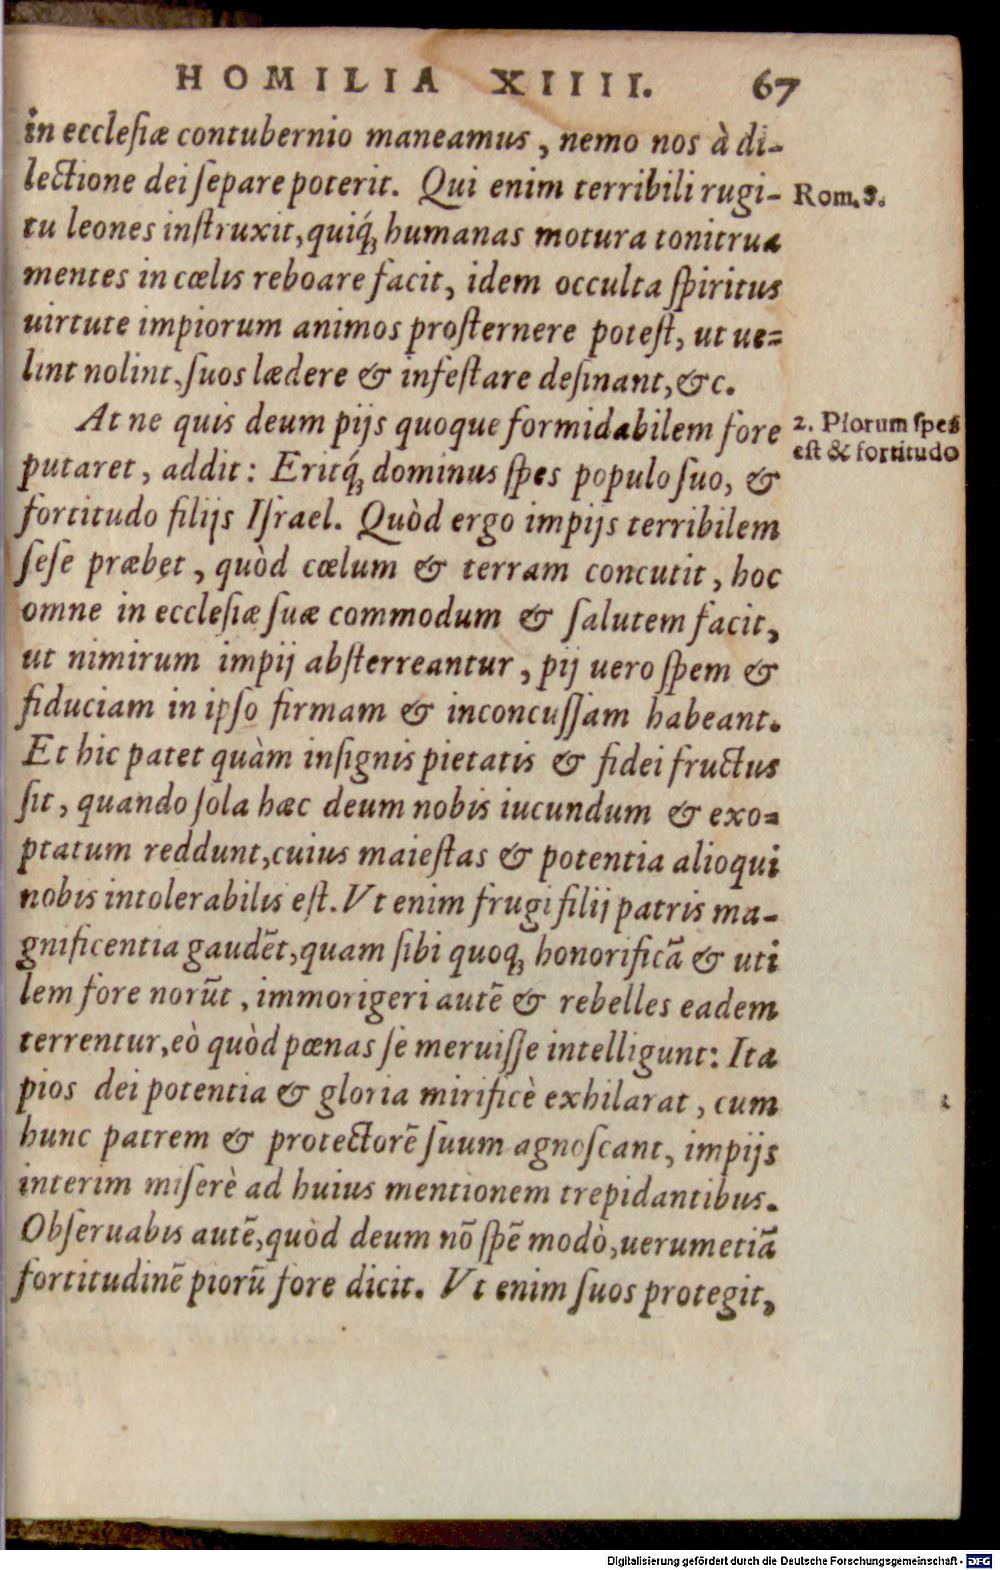 HOMILIA XIIII. 67
in ecclesiæ contubernio maneamus, nemo nos à di-
lectione dei separe poterit. Qui enim terribili rugi-
Rom. 8.
tu leones instruxit, quiq́; humanas motura tonitrua
mentes in cœlis reboare facit, idem occulta spiritus
uirtute impiorum animos prosternere potest, ut ue=
lint nolint, suos lædere & infestare desinant, &c.
At ne quis deum pijs quoque formidabilem fore
2. Piorum spes
est & fortitudo
putaret, addit: Eritq́; dominus spes populo suo, &
fortitudo filijs Israel. Quòd ergo impijs terribilem
sese præbet, quòd cœlum & terram concutit, hoc
omne in ecclesiæ suæ commodum & salutem facit,
ut nimirum impij absterreantur, pij uero spem &
fiduciam in ipso firmam & inconcussam habeant.
Et hic patet quàm insignis pietatis & fidei fructus
sit, quando sola hæc deum nobis iucundum & exo=
ptatum reddunt, cuius maiestas & potentia alioqui
nobis intolerabilis est. Vt enim frugi filij patris ma-
gnificentia gaudẽt, quam sibi quoq; honorificã & uti
lem fore norũt, immorigeri autẽ & rebelles eadem
terrentur, eò quòd pœnas se meruisse intelligunt: Ita
pios dei potentia & gloria mirificè exhilarat, cum
hunc patrem & protectorẽ suum agnoscant, impijs
interim miserè ad huius mentionem trepidantibus.
Obseruabis autẽ, quòd deum nõ spẽ modò, uerumetiã
fortitudinẽ piorũ fore dicit. Vt enim suos protegit,
Digitalisierung gefördert durch die Deutsche Forschungsgemeinschaft - DFG